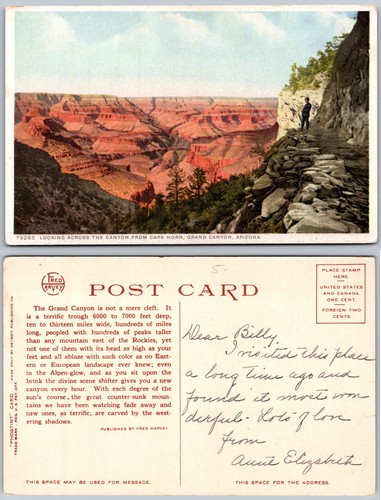 79295 LOOKING ACROSS THE CANYON FROM CAPE HORN, GRAND CANYON, ARIZONA
FRED
HARVEY
5-
POST CARD
PLACE STAMP
HERE
UNITED STATES
AND CANADA
ONE CENT
FOREIGN TWO
CENTS
The Grand Canyon is not a mere cleft. It
is a terrific trough 6000 to 7000 feet deep,
ten to thirteen miles wide, hundreds of miles
long, peopled with hundreds of peaks taller
than any mountain east of the Rockies, yet
not one of them with its head as high as your
feet and all ablaze with such color as no East-
ern or European landscape ever knew; even
in the Alpen-glow, and as you sit upon the
brink the divine scene shifter gives you a new
canyon every hour. With each degree of the
sun's course, the great counter-sunk moun-
tains we have been watching fade away and
new ones, as terrific, are carved by the west-
ering shadows.
PUBLISHED BY FRED HARVEY
"PHOSTINT" CARD
TRADE MARK REG. U.S. PAT. OFF.
MADE ONLY BY DETROIT PUBLISHING CO.
Dear Billy,
I visited this place
a long time ago and
found it most won
derful- Lots of love
from
Aunt Elizabeth
THIS SPACE MAY BE USED FOR MESSAGE.
THIS SPACE FOR THE ADDRESS.